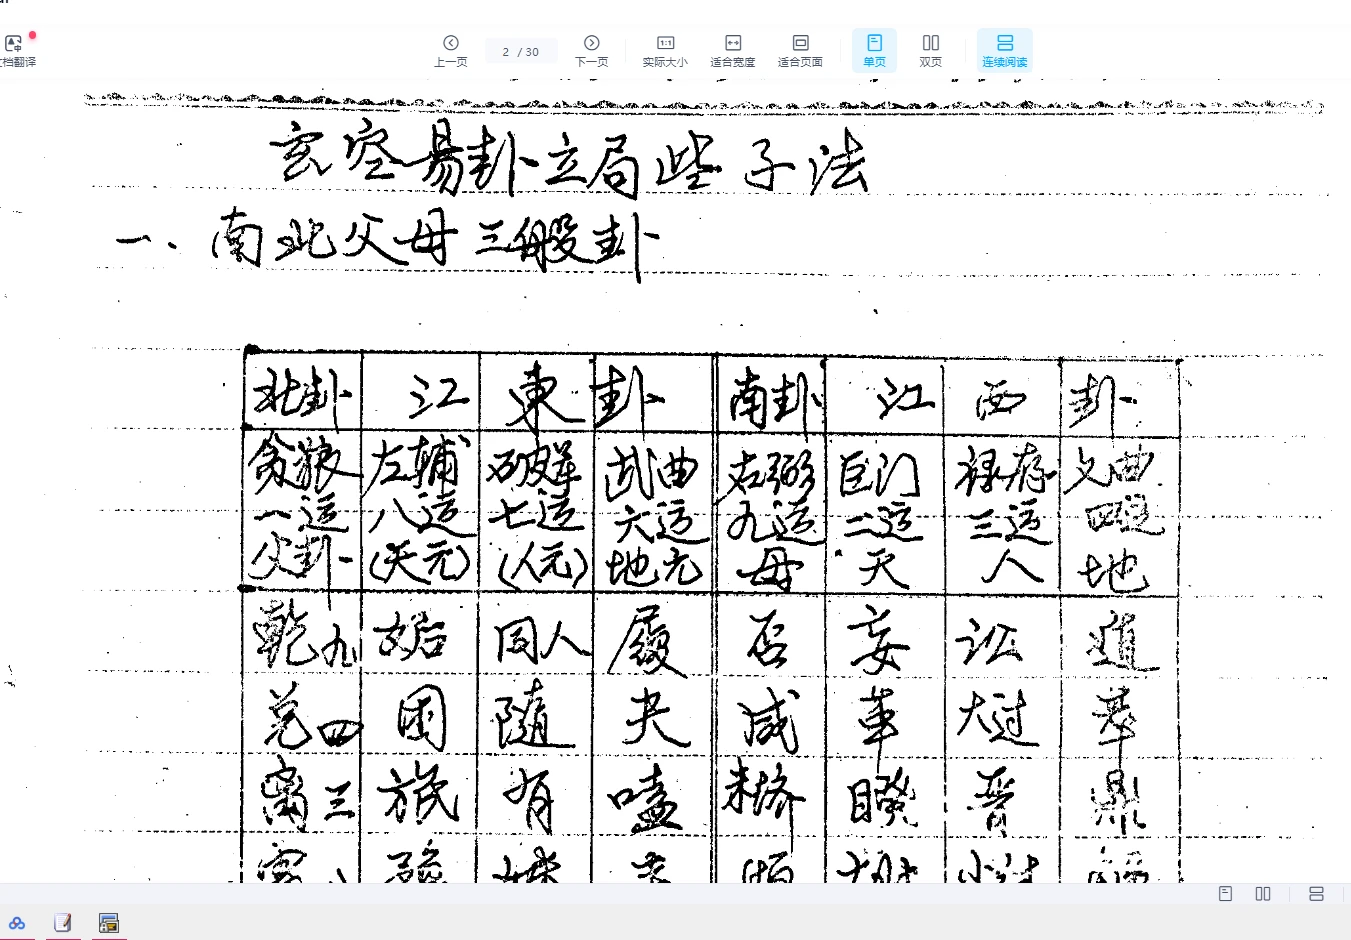 文档翻译
上一页
2 / 30
下一页
1:1
实际大小
适合宽度
适合页面
单页
双页
连续阅读
玄空易卦立局些子法
一、南北父母三般卦
北卦 江東卦 南卦 江西卦
贪狼 左辅 破军 武曲 右弼 巨门 禄存 文曲
一运 八运 七运 六运 九运 二运 三运 四运
父卦 (天元) (人元) 地元 母 天 人 地
乾九 姤 同人 履 否 妄 讼 遁
兑四 困 随 夬 咸 革 大过 萃
离三 旅 有 嗑 未济 睽 晋 鼎